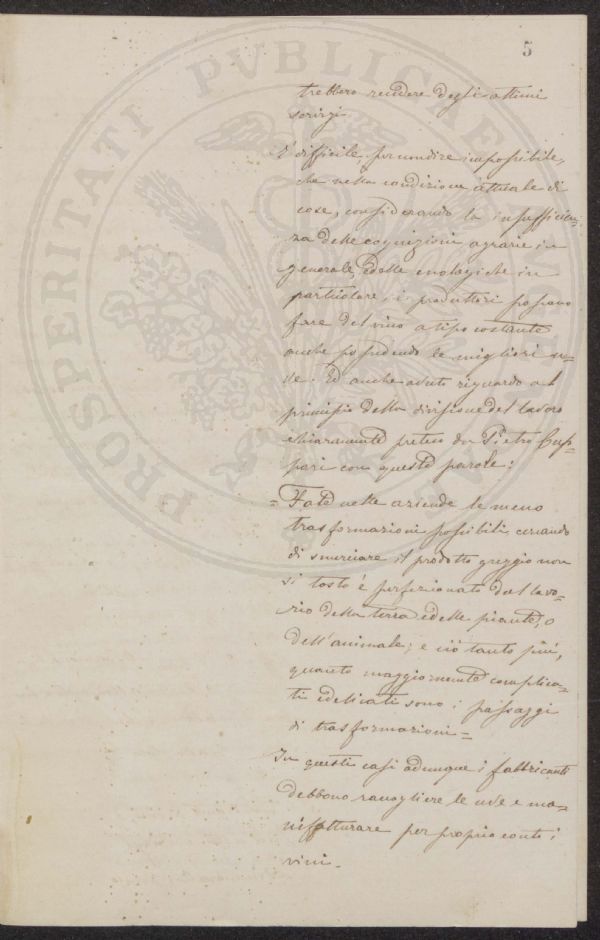 5
trebbero rendere degli ottimi
servizi.
È difficile, per non dire impossibile,
che nella condizione attuale di
cose, considerando la insufficien-
za delle cognizioni agrarie in
generale, e delle enologiche in
particolare, i produttori possano
fare del vino a tipo costante
anche possedendo le migliori uve
Ed anche avuto riguardo al
principio della divisione del lavoro
chiaramente preteso da Pietro Cup-
pari con queste parole:
= Fate nelle aziende le meno
trasformazioni possibili, cercando
di smerciare il prodotto greggio non
si tosto è perfezionato dal lavo-
rio della terra e delle piante, o
dell'animale; e ciò tanto più,
quanto maggiormente complica-
ti e delicati sono i passaggi
di trasformazioni =
In questi casi adunque i fabbricanti
debbono raccogliere le uve e ma-
nifatturare per proprio conto i
vini.
PROSPERITATI PVBLICAE